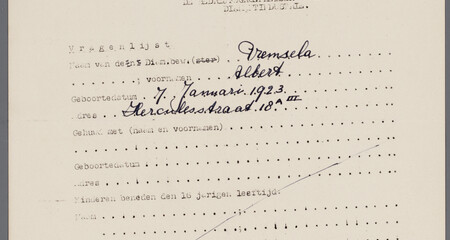 Vragenlijst
Naam van den Dien.bew.(ster) Dremsela
" voornamen Albert
Geboortedatum 7 Januari 1923
Adres Herculesstraat 18 A III
Gehuwd met (naam en voornamen)
Geboortedatum
Adres
Kinderen beneden den 16 jarigen leeftijd:
Naam